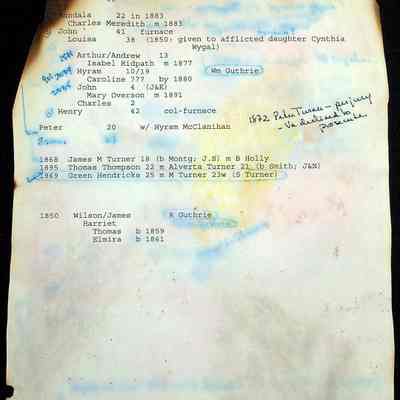 ndala 22 in 1883
Charles Meredith m 1883
John 41 furnace
Louisa 38 (1850: given to afflicted daughter Cynthia
Wygal)
Arthur/Andrew 13
Isabel Hidpath m 1877
Hyram 10/19 Wm Guthrie
Caroline ??? by 1880
John 4 (J&E)
Mary Overson m 1891
Charles 2
Henry 62 col-furnace
1872 Peter Turner - perjury
- Va declined to
prosecute
Peter 20 w/ Hyram McClanihan
1868 James M Turner 18 (b Montg; J.S) m B Holly
1895 Thomas Thompson 22 m Alverta Turner 21 (b Smith; J&N)
1869 Green Hendricks 25 m M Turner 23w (S Turner)
1850 Wilson/James R Guthrie
Harriet
Thomas b 1859
Elmira b 1861